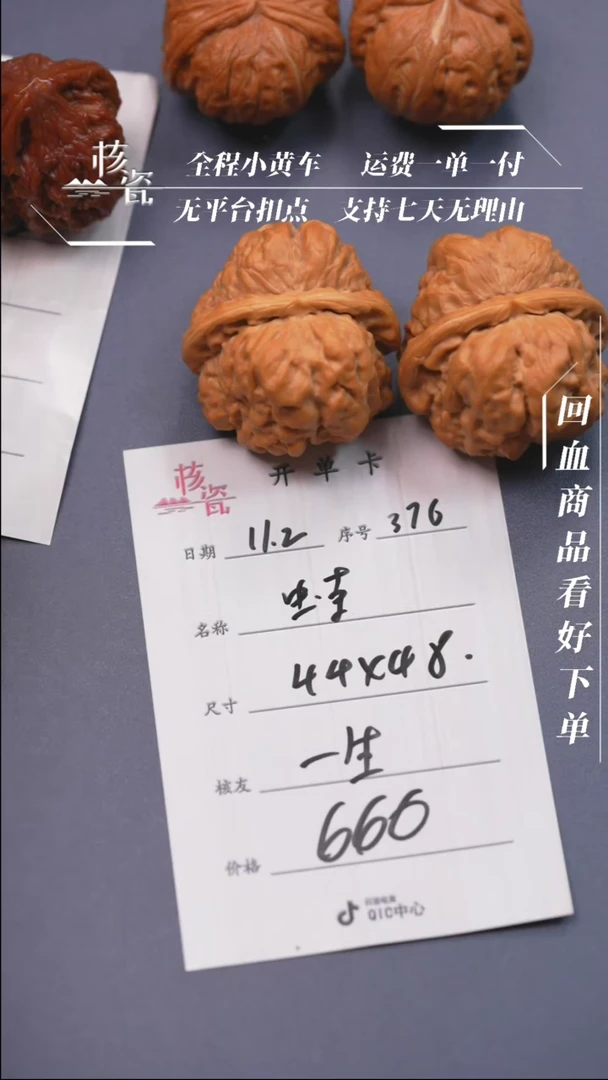 核瓷
全程小黄车 运费一单一付
无平台扣点 支持七天无理由
回血商品看好下单
核瓷
开单卡
日期 11.2 序号 376
名称
尺寸 44x48.
核友 一生
价格 660
抖音电商
QIC中心